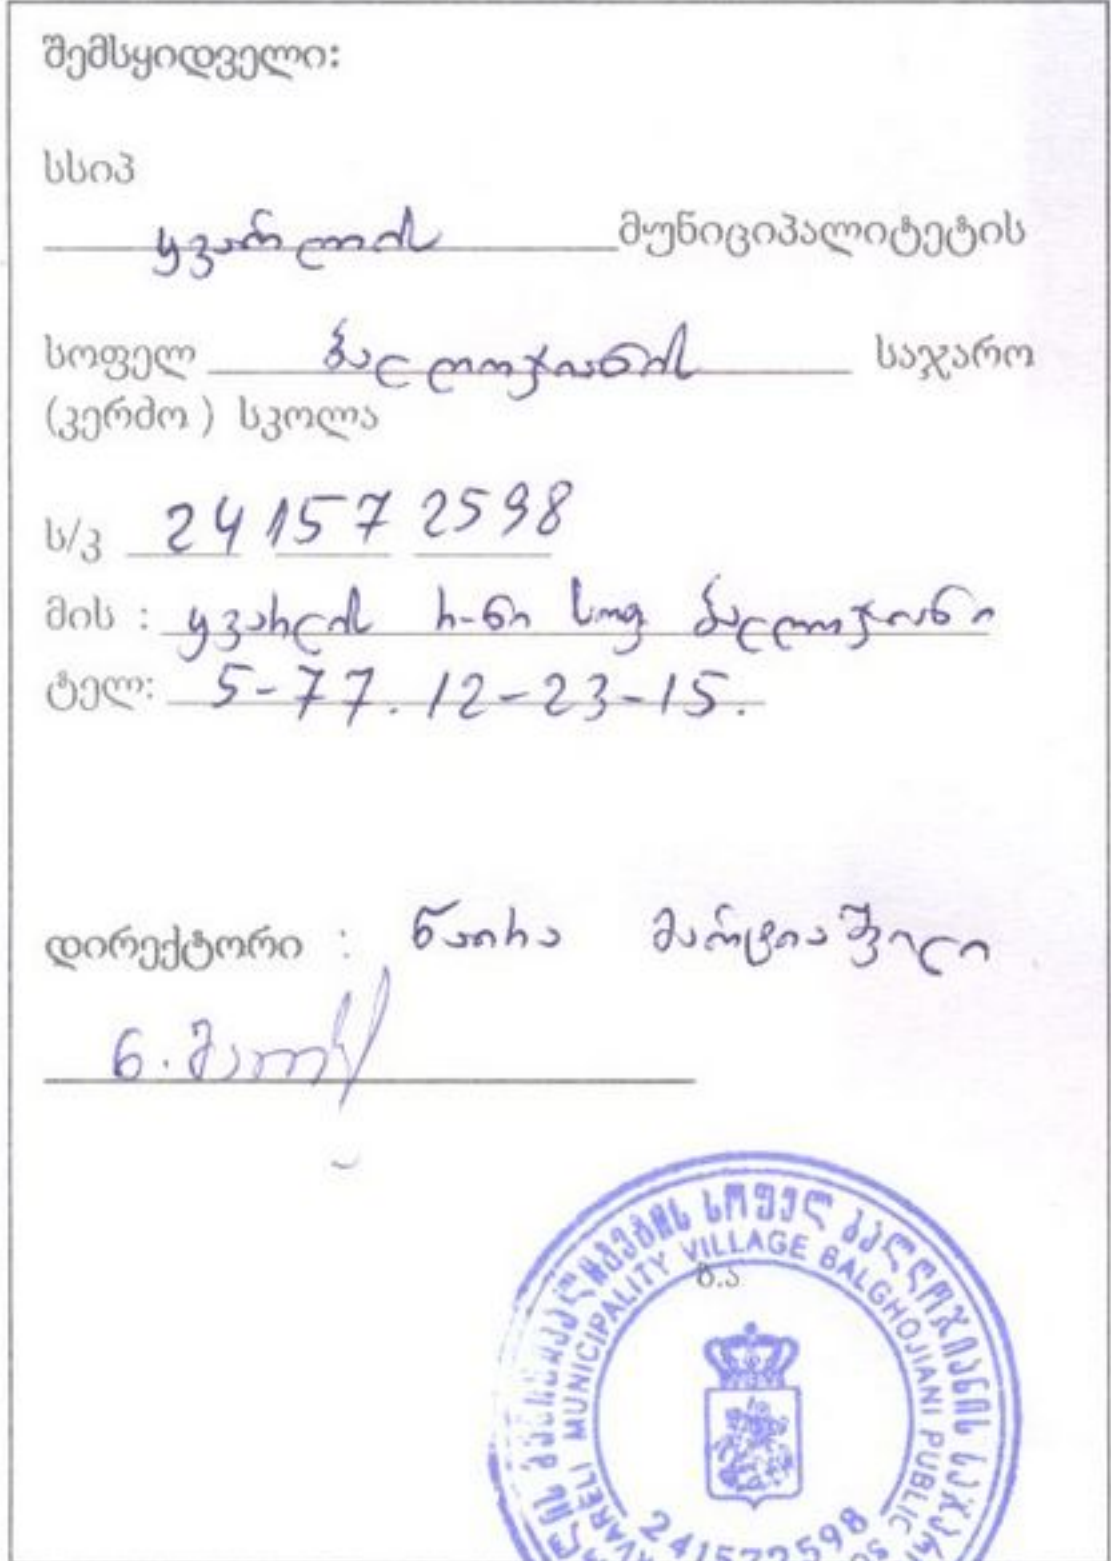 შემსყიდველი:
სსიპ
ყვარლის მუნიციპალიტეტის
სოფელ ბალღოჯიანის საჯარო
(კერძო ) სკოლა
ს/კ 24 157 2598
მის : ყვარლის რ-ნი სოფ ბალღოჯიანი
ტელ: 5-77. 12-23-15.
დირექტორი : ნაირა მარტიაშვილი
ნ. მარ
ბ.ა
მუნიციპალიტეტის სოფელ ბალღოჯიანის საჯარო
KVARELI MUNICIPALITY VILLAGE BALGHOJIANI PUBLIC
241572598